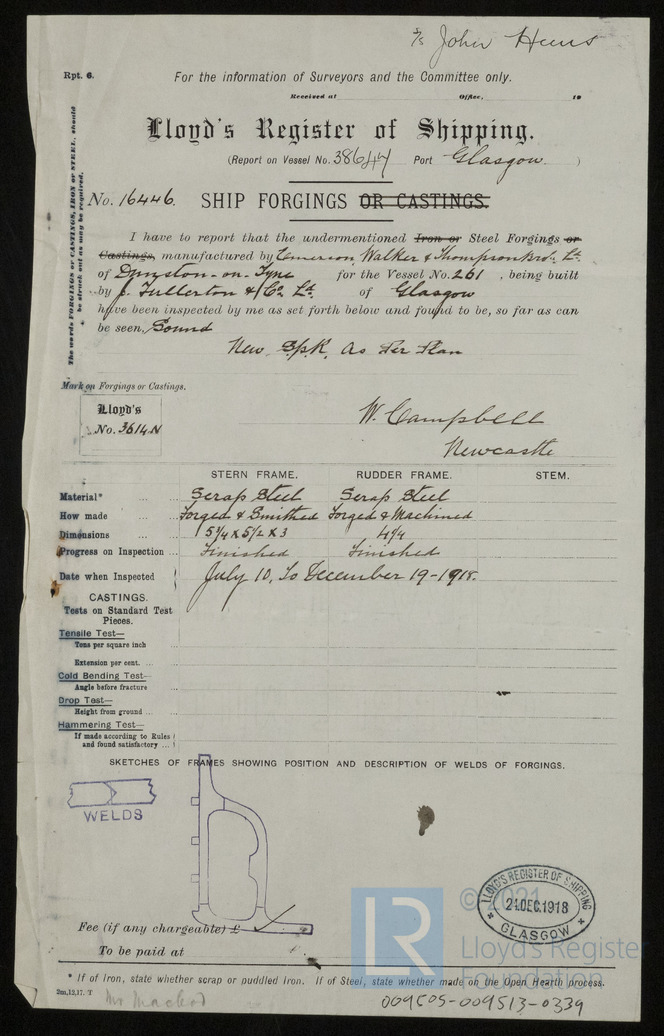 S/S John Hunt
Rpt. 6.
For the information of Surveyors and the Committee only.
Received at Office, 19
Lloyd's Register of Shipping.
(Report on Vessel No. 38647 Port Glasgow )
The words FORGINGS or CASTINGS, IRON or STEEL, should be struck out as may be required.
No. 16446. SHIP FORGINGS OR CASTINGS.
I have to report that the undermentioned Iron or Steel Forgings or
Castings, manufactured by Emerson, Walker & Thompson Bros. Ld.
of Dunston-on-Tyne for the Vessel No. 261, being built
by J. Fullerton & Co. Ld. of Glasgow
have been inspected by me as set forth below and found to be, so far as can
be seen, Sound
New As Per Plan
Mark on Forgings or Castings.
Lloyd's
No. 3614 N
W. Campbell
Newcastle
STERN FRAME. RUDDER FRAME. STEM.
Material* ... Scrap Steel Scrap Steel
How made ... Forged & Smithed Forged & Machined
Dimensions ... 5 3/4 x 5 1/2 x 3 4 1/4
Progress on Inspection ... Finished Finished
Date when Inspected July 10, To December 19-1918.
CASTINGS.
Tests on Standard Test
Pieces.
Tensile Test—
Tons per square inch
Extension per cent. ...
Cold Bending Test—
Angle before fracture ...
Drop Test—
Height from ground ... ...
Hammering Test—
If made according to Rules
and found satisfactory ...
SKETCHES OF FRAMES SHOWING POSITION AND DESCRIPTION OF WELDS OF FORGINGS.
WELDS
LLOYD'S REGISTER OF SHIPPING
21 DEC. 1918
GLASGOW
Fee (if any chargeable) £
To be paid at
© 2021
LR
Lloyd's Register
Foundation
* If of Iron, state whether scrap or puddled Iron. If of Steel, state whether made on the Open Hearth process.
2m,12,17. T
Mr Macleod
009505-009513-0339